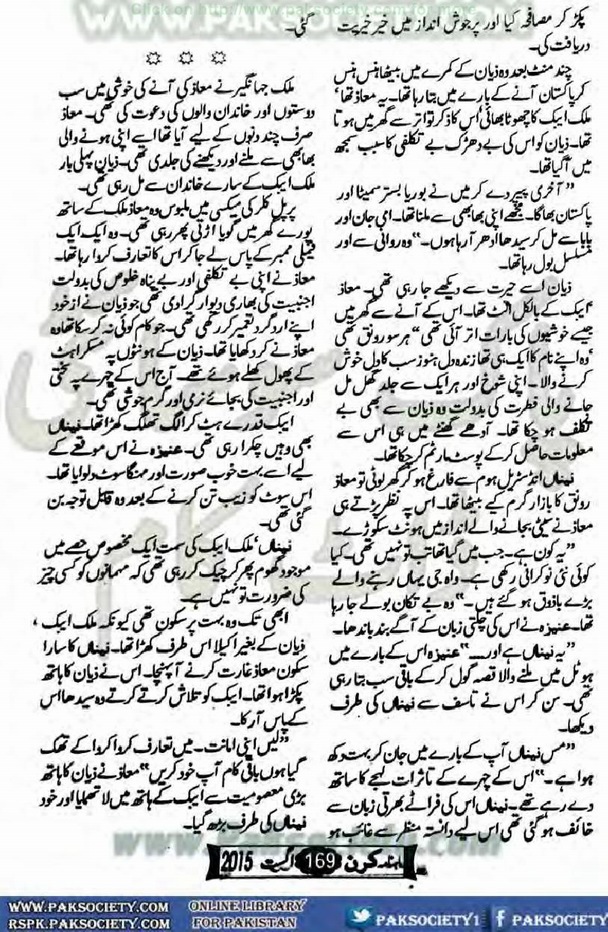 WWW.PAKSOCIETY.COM
Click on http://www.paksociety.com for more
پکڑ کر مصافحہ کیا اور پرجوش انداز میں خیر خیریت
دریافت کی۔
چند منٹ بعد وہ زیان کے کمرے میں بیٹھا ہنس ہنس
کر پاکستان آنے کے بارے میں بتا رہا تھا۔ یہ معاذ تھا'
ملک ایبک کا چھوٹا بھائی' اس کا ذکر تواتر سے گھر میں ہوتا
تھا۔ زیان کو اس کی بے دھڑک بے تکلفی کا سبب سمجھ
میں آگیا تھا۔
"آخری پیپر دے کر میں نے بوریا بستر سمیٹا اور
پاکستان بھاگا۔ مجھے اپنی بھابھی سے ملنا تھا۔ امی جان اور
بابا سے مل کر سیدھا ادھر آرہا ہوں۔" وہ روانی سے اور
مسلسل بول رہا تھا۔
زیان اسے حیرت سے دیکھے جارہی تھی۔ معاذ
ایبک کے بالکل الٹ تھا۔ اس کے آنے سے گھر میں
جیسے خوشیوں کی بارات اتر آئی تھی' ہر سو رونق تھی
'وہ اپنے نام کا ایک ہی تھا زندہ دل ہنوز سب کا دل خوش
کرنے والا۔ اپنی شوخ اور ہر ایک سے جلد گھل مل
جانے والی فطرت کی بدولت وہ زیان سے بھی بے
تکلف ہوچکا تھا۔ آدھے گھنٹے میں ہی اس سے
معلومات حاصل کرکے پوسٹ مارٹم کرچکا تھا۔
نیناں انڈسٹریل ہوم سے فارغ ہوکر گھر لوٹی تو معاذ
رونق کا بازار گرم کیے بیٹھا تھا۔ اس پہ نظر پڑتے ہی
معاذ نے سیٹی بجانے والے انداز میں ہونٹ سکوڑے۔
"یہ کون ہے۔ جب میں گیا تھا تب تو نہیں تھی۔ کیا
کوئی نئی نوکرانی رکھی ہے۔ واہ جی یہاں رہنے والے
بڑے باذوق ہوگئے ہیں۔" وہ بے تکان بولے جارہا
تھا۔ عنیزہ نے اس کی چلتی زبان کے آگے بند باندھا۔
"یہ نیناں ہے اور...." عنیزہ اس کے بارے میں
ہوٹل میں ملنے والا قصہ گول کرکے باقی سب بتا رہی
تھی۔ سن کر اس نے تاسف سے نیناں کی طرف
دیکھا۔
"مس نیناں آپ کے بارے میں جان کر بہت دکھ
ہوا ہے۔" اس کے چہرے کے تاثرات لہجے کا ساتھ
دے رہے تھے۔ نیناں اس کی فراٹے بھرتی زبان سے
خائف ہوگئی تھی اس لیے دانستہ منظر سے غائب ہو
گئی۔
☆ ☆ ☆
ملک جہانگیر نے معاذ کی آنے کی خوشی میں سب
دوستوں اور خاندان والوں کی دعوت کی تھی۔ معاذ
صرف چند دنوں کے لیے آیا تھا اسے اپنی ہونے والی
بھابھی سے ملنے اور دیکھنے کی جلدی تھی۔ زیان پہلی بار
ملک ایبک کے سارے خاندان سے مل رہی تھی۔
پرپل کلر کی میکسی میں ملبوس وہ معاذ ملک کے ساتھ
پورے گھر میں گویا اڑتی پھر رہی تھی۔ وہ ایک ایک
فیملی ممبر کے پاس لے جاکر اس کا تعارف کروا رہا تھا۔
معاذ نے اپنی بے تکلفی اور بے پناہ خلوص کی بدولت
اجنبیت کی بھاری دیوار گرادی تھی جو زیان نے از خود
اپنے اردگرد تعمیر کر رکھی تھی۔ جو کام کوئی نہ کرسکا تھا وہ
معاذ نے کر دکھایا تھا۔ زیان کے ہونٹوں پہ مسکراہٹ
کے پھول کھلے ہوئے تھے۔ آج اس کے چہرے پہ سختی
اور اجنبیت کی بجائے نرمی اور گرم جوشی تھی۔
ایبک قدرے ہٹ کر الگ تھلگ کھڑا تھا۔ نیناں
بھی وہیں چکرا رہی تھی۔ عنیزہ نے اس موقعے کے
لیے اسے بہت خوب صورت اور مہنگا سوٹ دلوایا تھا۔
اس سوٹ کو زیب تن کرنے کے بعد وہ قابل توجہ بن
گئی تھی۔
نیناں' ملک ایبک کی سمت ایک مخصوص حصے میں
موجود گھوم پھر کر چیک کررہی تھی کہ مہمانوں کو کسی چیز
کی ضرورت تو نہیں ہے۔
ابھی تک وہ بہت پرسکون تھی کیونکہ ملک ایبک'
زیان کے بغیر اکیلا اس طرف کھڑا تھا۔ نیناں کا سارا
سکون معاذ غارت کرنے آپہنچا۔ اس نے زیان کا ہاتھ
پکڑا ہوا تھا۔ ایبک کو تلاش کرتے کرتے وہ سیدھا اس
کے پاس آرکا۔
"لیں اپنی امانت۔ میں تعارف کروا کروا کے تھک
گیا ہوں باقی کام آپ خود کریں" معاذ نے زیان کا ہاتھ
بڑی معصومیت سے ایبک کے ہاتھ میں لا تھمایا اور خود
نیناں کی طرف بڑھ گیا۔
ماہنامہ کرن 169 اگست 2015
WWW.PAKSOCIETY.COM
RSPK.PAKSOCIETY.COM
ONLINE LIBRARY
FOR PAKISTAN
PAKSOCIETY1
PAKSOCIETY